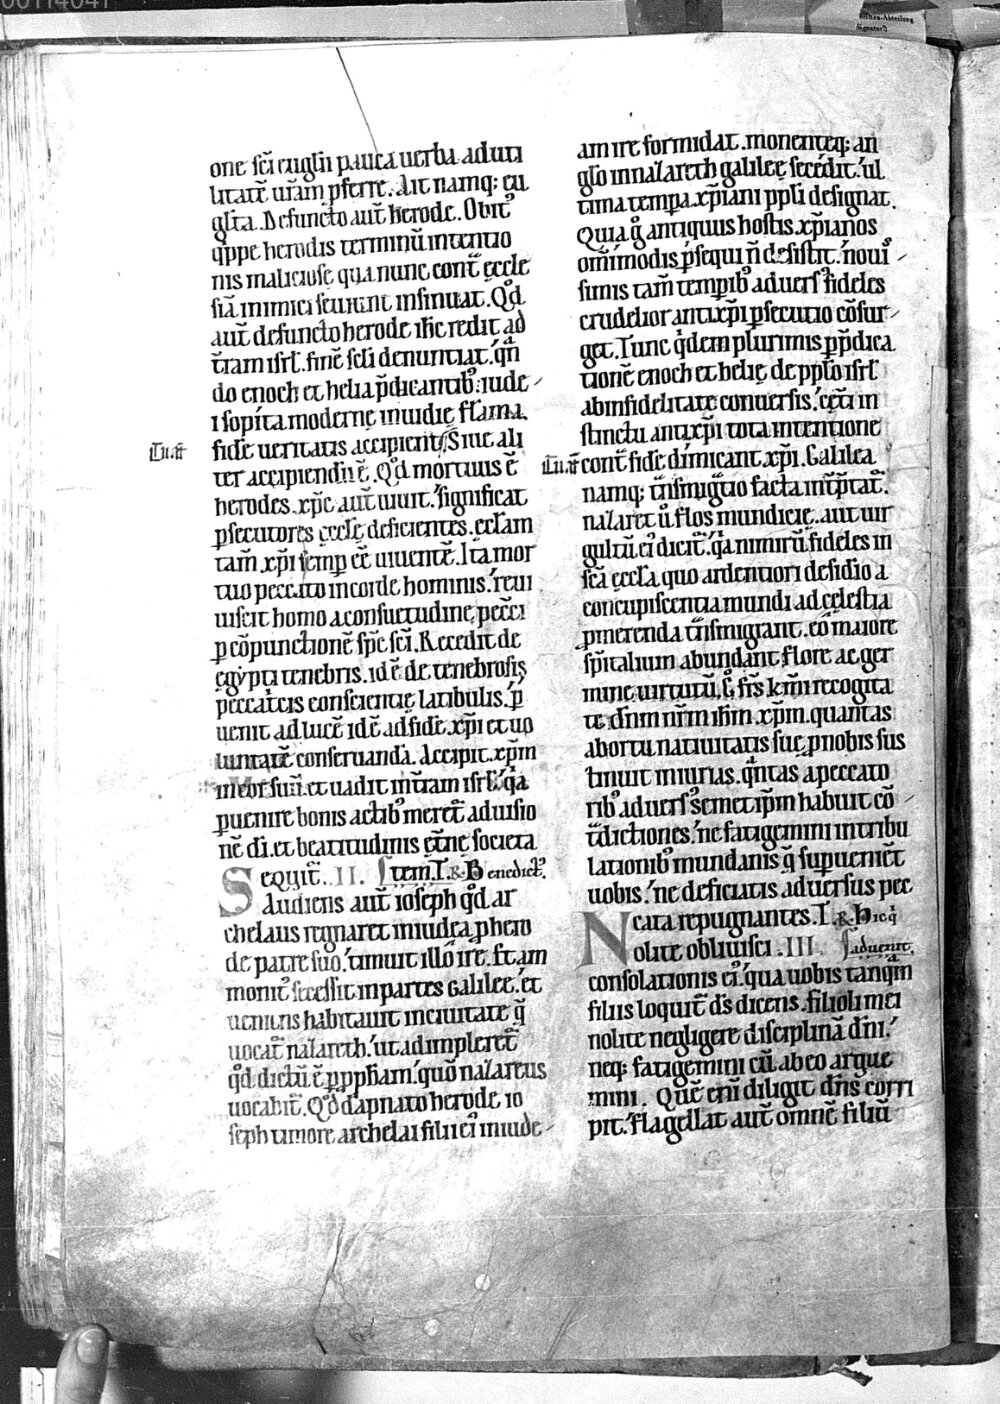 00114041
one sc̄i euglii pauca uerba ad uti
litatē urām pferre. Ait namq; eu
gl̄ta. Defuncto aut̄ herode. Obit᷒
q̇ppe herodis terminū intentio
nis maliciose qua nunc cont̄ eccle
siā inimici seuiunt insinuat. Qd̄
aut̄ defuncto herode ih̄c redit ad
t̄ram isrl̄. finē scl̄i denuntiat. qn̄
do enoch et helia p̄dicantib; iude
i sopita moderne inuidie flāma.
fidē ueritatis accipient. Siue ali
ter accipiendū ē. Qd̄ mortuus ē
herodes. xp̄c aut̄ uiuit. significat
psecutores eccl̄e deficientes. eccl̄am
tam̄ xp̄i semp eē uiuentē. Ita mor
tuo peccato in corde hominis. reui
uiscit homo a consuetudine pecc̄i
p cōpunctionē sp̄c sc̄i. Recedit de
egypti tenebris. id ē de tenebrosis
peccatricis conscientie latibulis. p̄
uenit ad lucē id ē ad fidē xp̄i et uo
luntatē conseruandā. Accipit xp̄m
in cor suū. et uadit in t̄ram isrl̄. q̇a
puenire bonis actib᷒ meret̄ ad uisio
nē dī. et beatitudinis et̄ne societa
Sequit̄. II. Item. I. & B enedict᷒.
Audiens aut̄ ioseph qd̄ ar
chelaus regnaret in iudea p hero
de patre suo. timuit illo ire. Et am
monit᷒ secessit in partes Galilee. et
ueniens habitauit in ciuitate q̄
uocat̄ nazareth. ut adimpleret̄
qd̄ dictū ē p pph̄am. quō nazareus
uocabit̄. Qd̄ dāpnato herode io
seph timore archelai filii ei᷒ in iude
am ire formidat. monenteq; an
glo in nazareth galilee secedit. ul
tima tempa xp̄iani ppl̄i designat.
Quia g᷒ antiquus hostis xp̄ianos
om̄imodis psequi n̄ desistit. noui
simis tam̄ temporib᷒ aduers᷒ fideles
crudelior antixp̄i psecutio cōsur
get. Tunc qḋem plurimis p p̄dica
tionē enoch et helie de pplo isrl̄
ab infidelitate conuersis. cet̄i in
stinctu antixp̄i tota intentione
cont̄ fidē dimicant xp̄i. Galilea
namq; t̄nsmigtio facta int̄ptat̄.
nazaret ū flos mundicie. aut uir
gultū ei᷒ dicit̄. q̇a nimirū fideles in
sc̄a eccl̄a quo ardentiori desidio a
concupiscentia mundi ad celestia
pmerenda t̄nsmigrant. eō maiore
sp̄italium abundant flore ac ger
mine uirtutū. G᷒ frs̄ km̄i recogita
te dn̄m nr̄m ih̄m xp̄m. quantas
ab ortu natiuitatis sue p nobis sus
tinuit iniurias. qn̄tas a peccato
rib᷒ aduers᷒ semetip̄m habuit cō
t̄dictiones. ne fatigemini in tribu
lationib᷒ mundanis q̄ supueniēt
uobis. ne deficiatis aduersus pec
cata repugnantes. I. & B. Hic q̇
Nolite obliuisci. III. aduenit.
consolationis ei᷒. qua uobis tanqm̄
filiis loquit̄ ds̄ dicens. filioli mei
nolite negligere disciplinā dn̄i.
neq; fatigemini cū ab eo argue
mini. Quē eni᷒ diligit dn̄s corri
pit. flagellat aut̄ omnē filiū